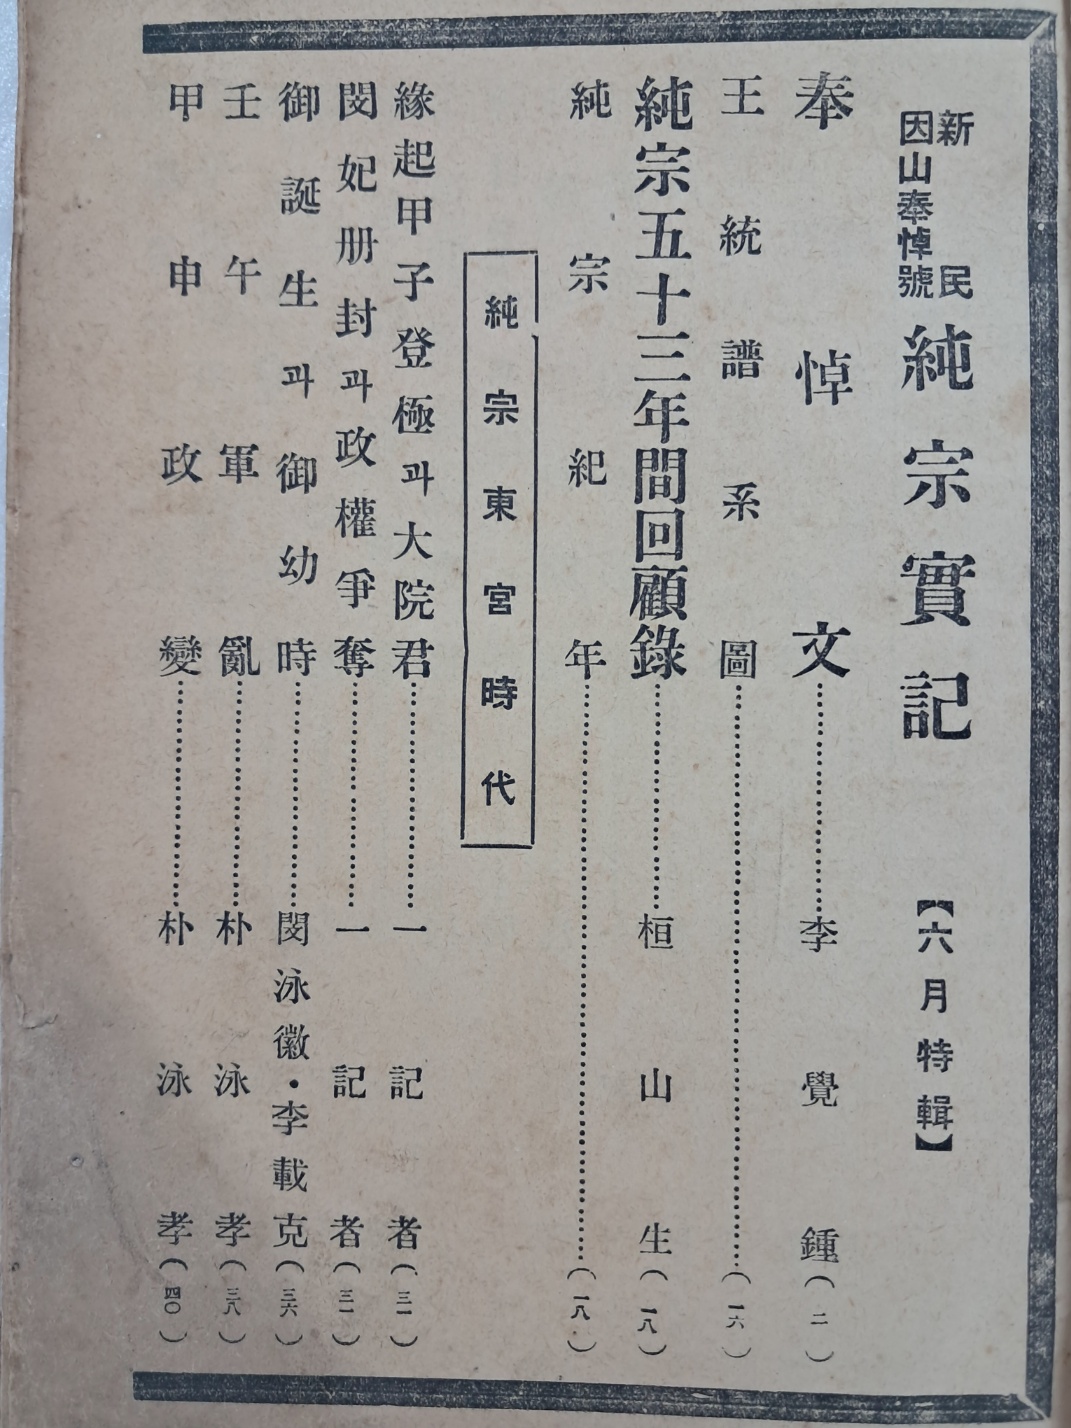 新民
因山奉悼號
純宗實記
【六月特輯】
奉悼文……李覺鍾(二)
王統譜系圖……(一六)
純宗五十三年間回顧錄……桓山生(一八)
純宗紀年……(一八)
純宗東宮時代
緣起甲子登極과大院君……一記者(三一)
閔妃册封과政權爭奪……一記者(三一)
御誕生과御幼時……閔泳徽・李載克(三六)
壬午軍亂……朴泳孝(三八)
甲申政變……朴泳孝(四〇)